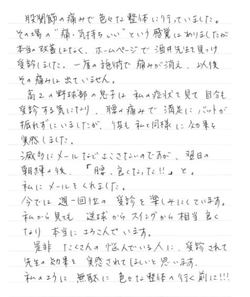 股関節の痛みで色々な整体に行っていました。
その場の"痛・気持ちいい"という感覚はありましたが
本当の改善はなく、ホームページで酒井先生を見つけ
受診しました。一度の施術で痛みが消え、以後
その痛みは出ていません。
高2の野球部の息子は私の症状を見て自分も
受診する気になり、腰の痛みで満足にバットが
振れずにいましたが、彼も私と同様に効果を
実感しました。
滅多にメールなどよこさないのですが、翌日の
朝練の後、「腰、良くなった!!」と
私にメールをくれました。
今では週一回位の受診を楽しみにしています。
私から見ても速球からスイングから相当良く
なり本当によろこんでいます。
是非たくさんの悩んでいる人に受診されて
先生の効果を実感されてほしいと思います。
私のように無駄に色々な整体の行く前に!!!